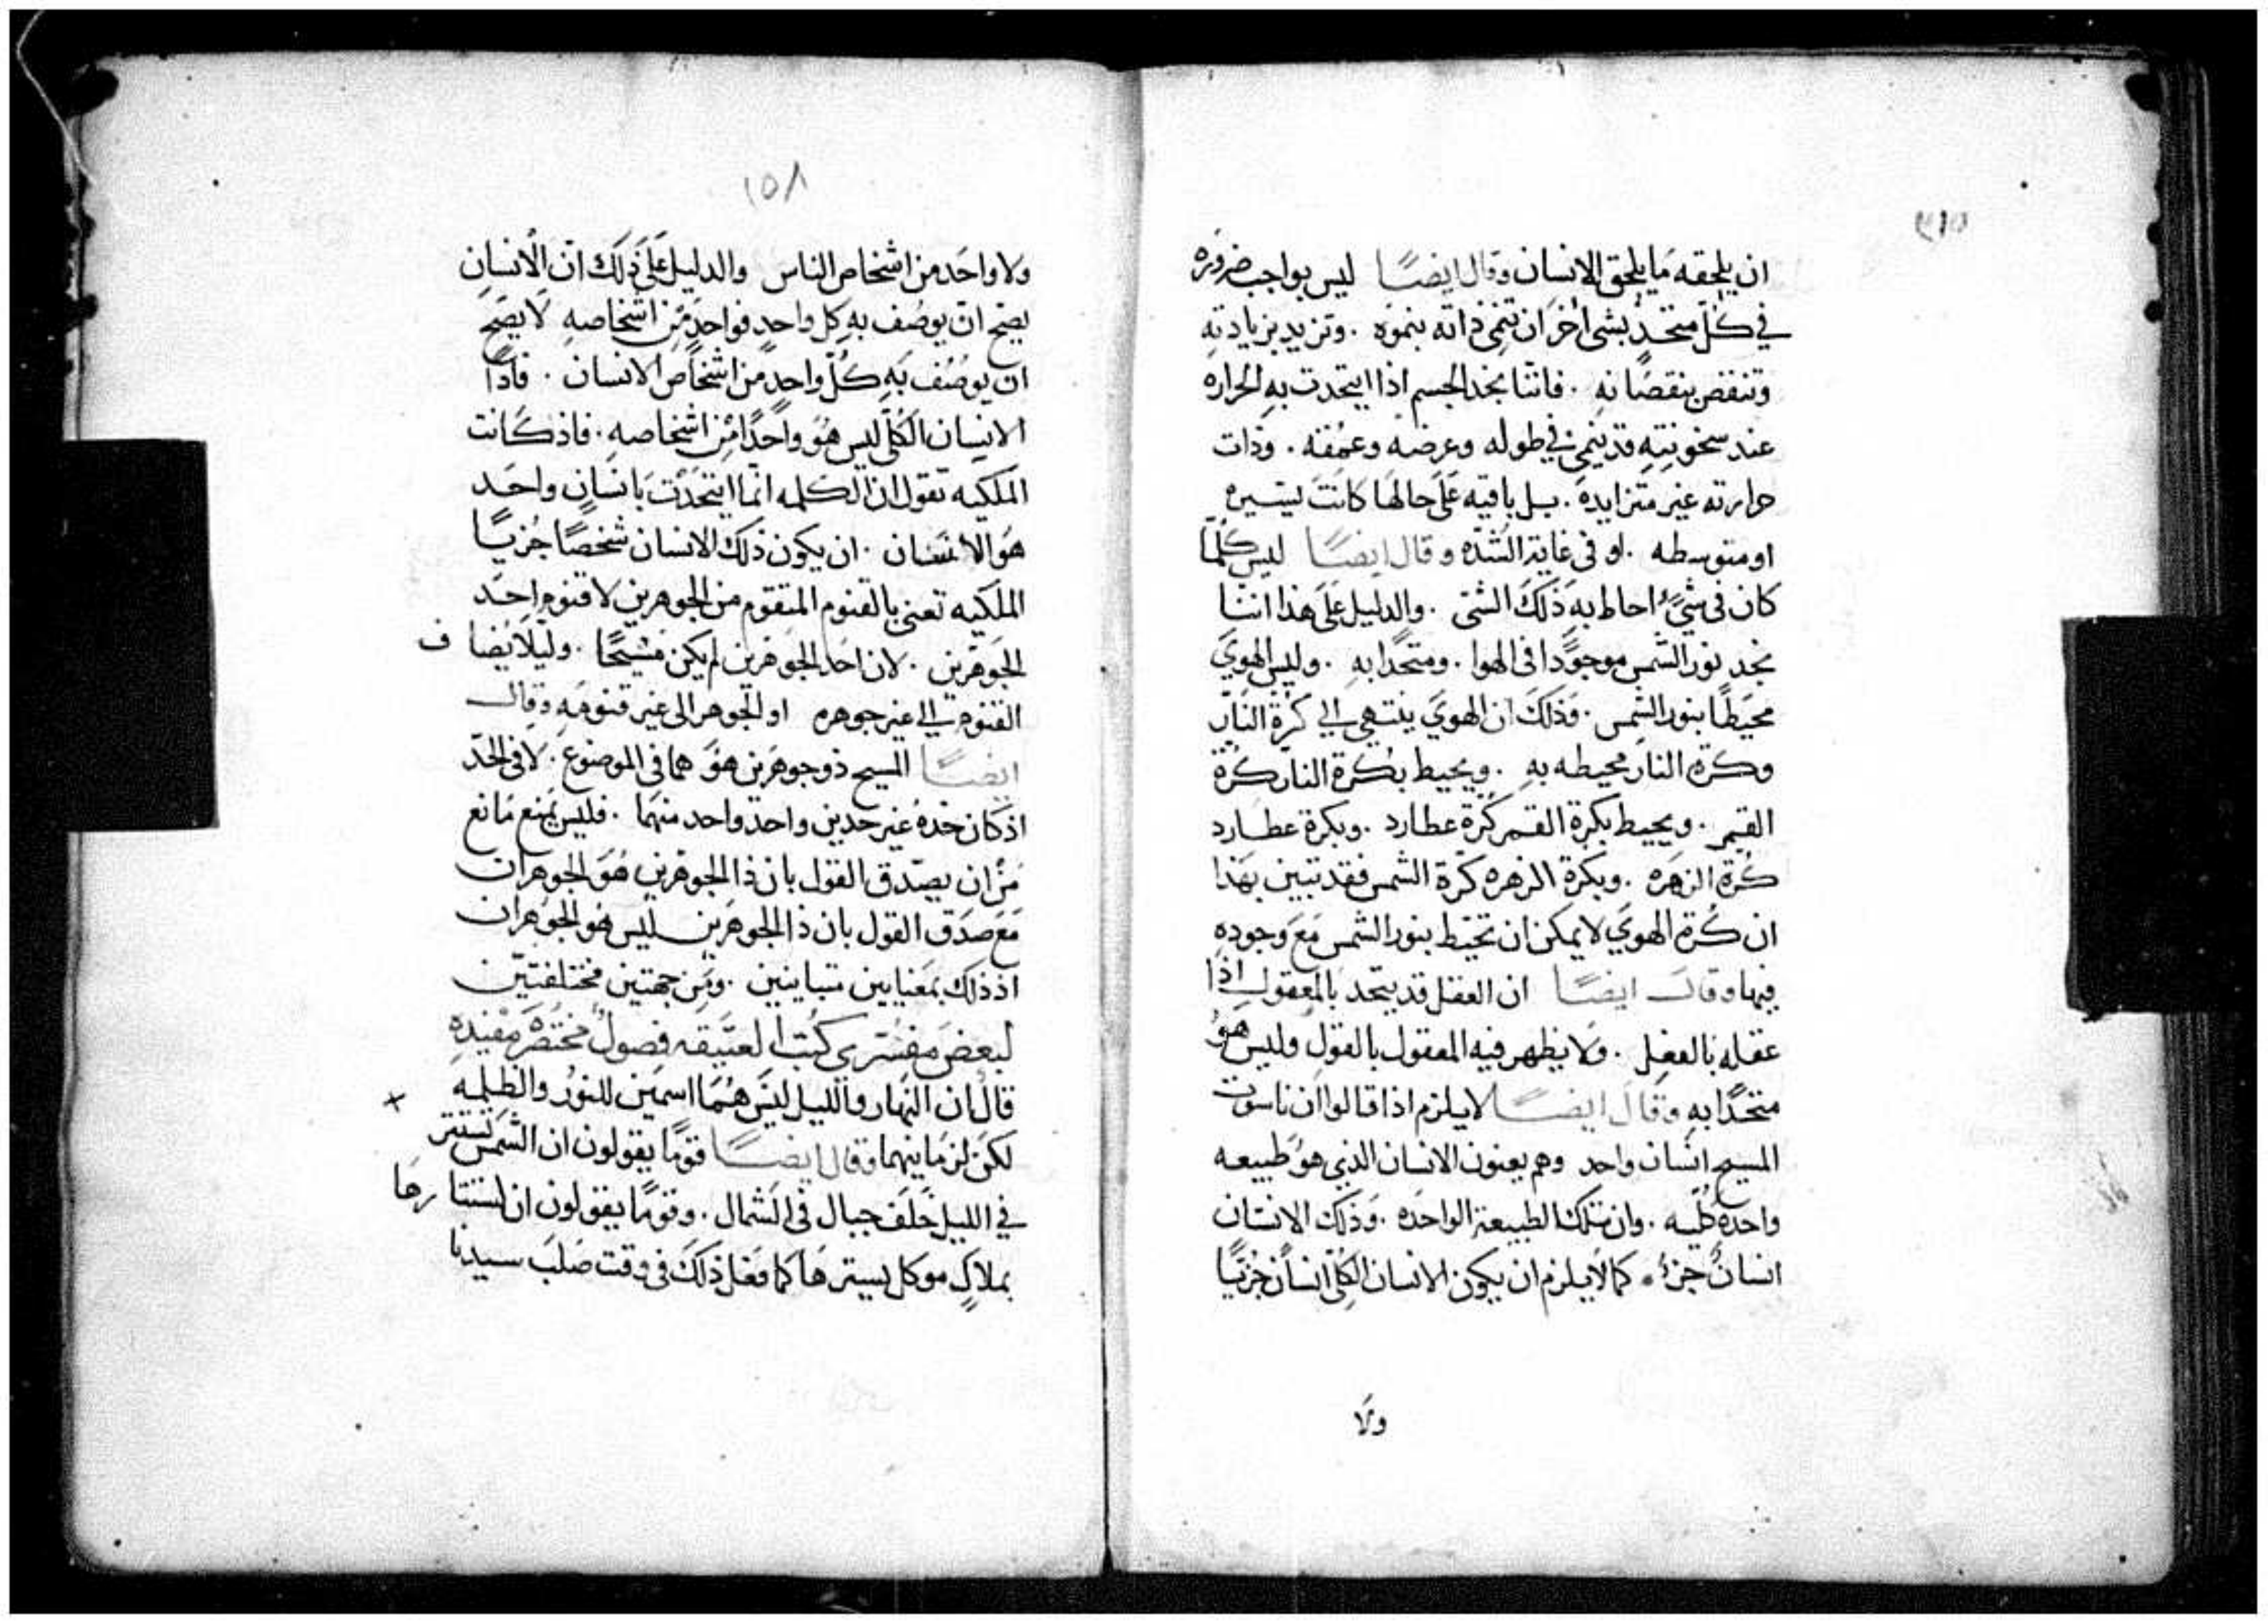 ٣١٥
ان يلحقه ما يلحق الانسان وقال ايضًا ليس بواجب ضروره
في كلّ متحدٌ بشى اخر ان تنمى ذاته بنموه . وتزيد بزيادتهِ
وتنقص بنقصانهِ . فاننا نجد الجسم اذا ايتحدت بهِ الحراره
عند سخونتهِ قد ينمى في طوله وعرضه وعمقه . وذات
حرارته غير متزايده . بل باقيه على حالها كانت ليسيره
او متوسطه . او فى غاية الشده وقال ايضًا ليس كلّما
كان فى شيٌ احاط به ذلك الشى . والدليل على هذا اننا
نجد نور الشمس موجودًا فى الهوا . ومتحدًا بهِ . وليس الهوىَ
محيطًا بنور الشمس . وذلك ان الهوىَ ينتهى الي كرة النار
وكرة النار محيطه بهِ . ويحيط بكرة النار كرة
القمر . ويحيط بكرة القمر كرة عطارد . وبكرة عطارد
كرة الزهره . وبكرة الزهره كرة الشمس فقد تبين بهذا
ان كرة الهوىَ لا يمكن ان تحيط بنور الشمس مع وجودهِ
فيها وقال ايضًا ان العقل قد يتحد بالمعقول اذا
عقله بالفعل . ولا يظهر فيه المعقول بالقول وليس هو
متحدًا بهِ وقال ايضًا لا يلزم اذا قالوا ان ناسوت
المسيح انسان واحد وهم يعنون الانسان الذي هو طبيعه
واحده كليه . وان تلك الطبيعة الواحده . وذلك الانسان
انسانٌ جزءٌ . كما لا يلزم ان يكون الانسان الكلّى انسانٌ جزئيًا
ولا
١٥٨
ولا واحد من اشخاص الناس والدليل على ذلك انّ الانسان
يصح ان يوصف به كل واحدٍ فواحدٍ من اشخاصهِ لا يصح
ان يوصف به كلّ واحدٍ من اشخاص الانسان . فاذًا
الانسان الكلّى ليس هو واحدًا من اشخاصهِ . فاذ كانت
الملكيه تقول ان الكلمه انما ايتحدت بانسانٍ واحد
هو الانسان . ان يكون ذلك الانسان شخصًا جُزيًا
الملكيه تعنى بالقنوم المتقوم من الجوهرين لا قنوم احد
الجوهرين . لان احد الجوهرين لم يكن مسيحًا . وليلا يُضاف
القنوم الي غير جوهره او الجوهر الى غير قنومه وقال
ايضًا المسيح ذو جوهرين هو هما فى الموضوع . لا فى الحدّ
اذ كان حده غير حدين واحد واحد منهما . فليس يمنع مانع
من ان يصدق القول بان ذا الجوهرين هو الجوهران
مع صدق القول بان ذا الجوهرين ليس هو الجوهران
اذ ذلك بمعنايين متباينين . ومن جهتين مختلفتين
لبعض مفسّرى كتب العتيقه فصولٌ مختصره مفيده
قال ان النهار والليل ليس هما اسمين للنور والظلمه
لكن لزمانيهما وقال ايضًا قومًا يقولون ان الشمس تستتر
في الليل خلف جبال فى الشمال . وقومًا يقولون ان استتارها
بملاكٍ موكل يسترها كما فعل ذلك فى وقت صلب سيدنا